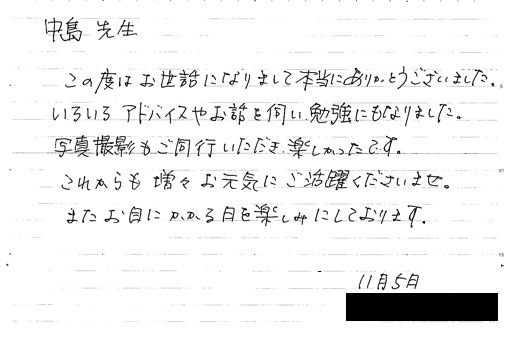 中島 先生
この度はお世話になりまして本当にありがとうございました。
いろいろアドバイスやお話を伺い、勉強にもなりました。
写真撮影もご同行いただき、楽しかったです。
これからも増々お元気にご活躍くださいませ。
またお目にかかる日を楽しみにしております。
11月5日